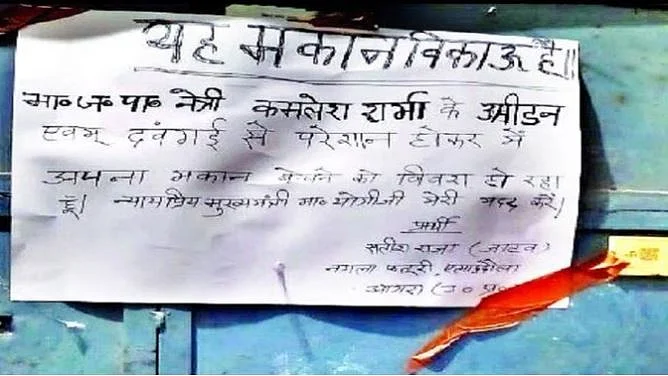 यह मकान बिकाऊ है।
भा०ज०पा० नेत्री कमलेश शर्मा के उत्पीडन
एवम् दबंगई से परेशान होकर में
अपना मकान बेचने को विवश हो रहा
हूँ। न्यायप्रिय मुख्यमंत्री मा० योगीजी मेरी मदद करें।
प्रार्थी
सतीश राजा (जाटव)
नगला
आगरा (उ० प्र०